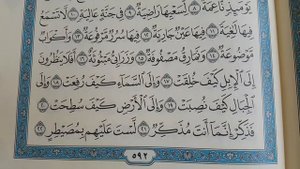 يَوْمَئِذٍ نَّاعِمَةٌ ۝٨ لِّسَعْيِهَا رَاضِيَةٌ ۝٩ فِي جَنَّةٍ عَالِيَةٍ ۝١٠ لَّا تَسْمَعُ
فِيهَا لَاغِيَةً ۝١١ فِيهَا عَيْنٌ جَارِيَةٌ ۝١٢ فِيهَا سُرُرٌ مَّرْفُوعَةٌ ۝١٣ وَأَكْوَابٌ
مَّوْضُوعَةٌ ۝١٤ وَنَمَارِقُ مَصْفُوفَةٌ ۝١٥ وَزَرَابِيُّ مَبْثُوثَةٌ ۝١٦ أَفَلَا يَنظُرُونَ
إِلَى الْإِبِلِ كَيْفَ خُلِقَتْ ۝١٧ وَإِلَى السَّمَاءِ كَيْفَ رُفِعَتْ ۝١٨ وَإِلَى
الْجِبَالِ كَيْفَ نُصِبَتْ ۝١٩ وَإِلَى الْأَرْضِ كَيْفَ سُطِحَتْ ۝٢٠
فَذَكِّرْ إِنَّمَا أَنتَ مُذَكِّرٌ ۝٢١ لَّسْتَ عَلَيْهِم بِمُصَيْطِرٍ ۝٢٢
٥٩٢